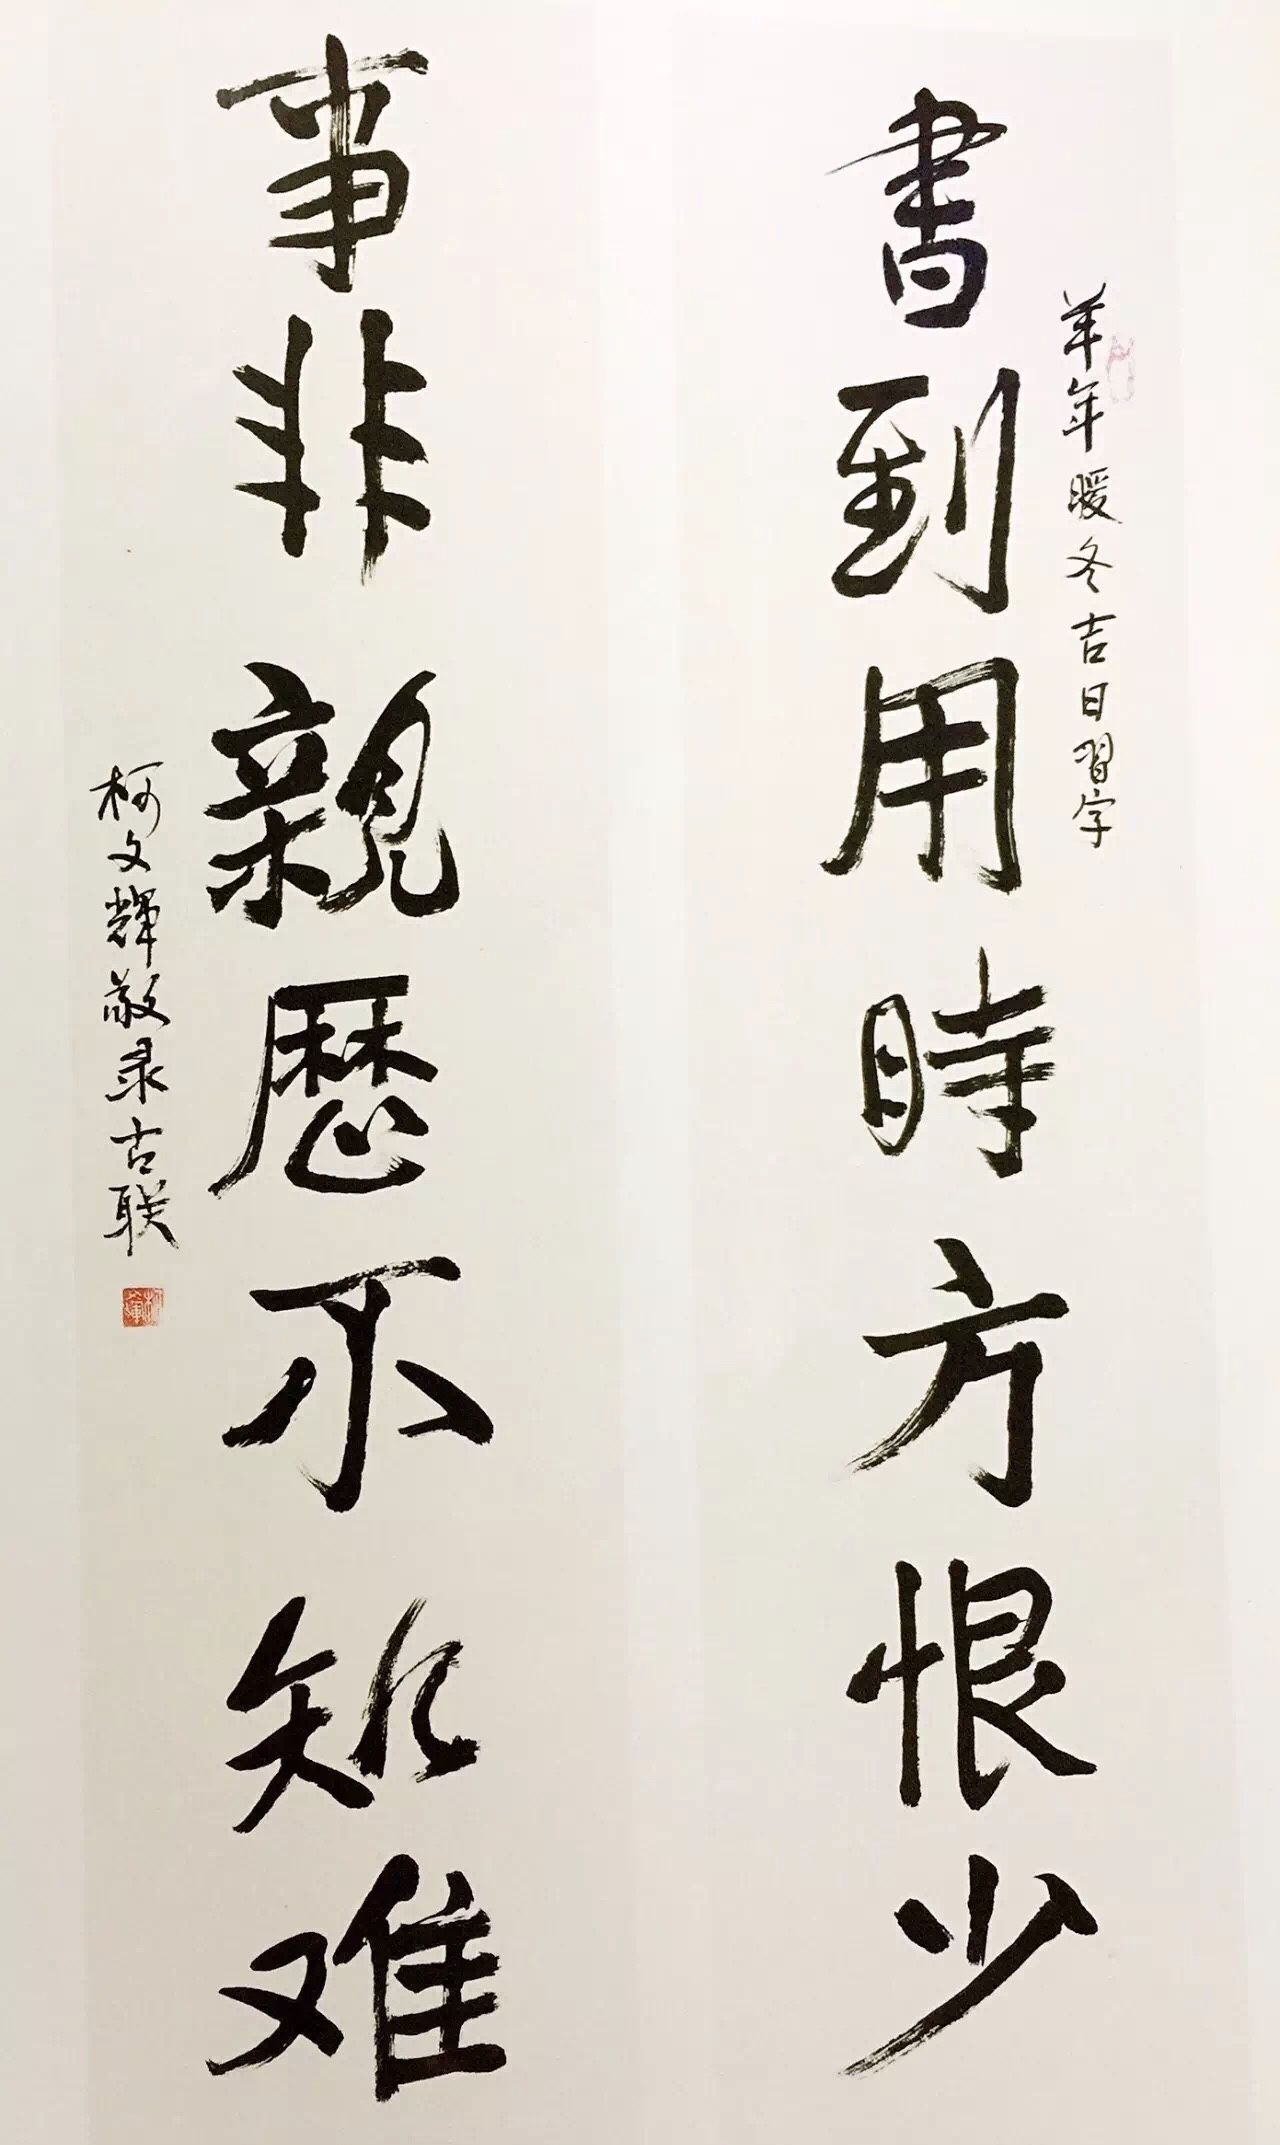 書到用時方恨少
羊年暖冬吉日習字
事非親歷不知难
柯文輝敬录古联